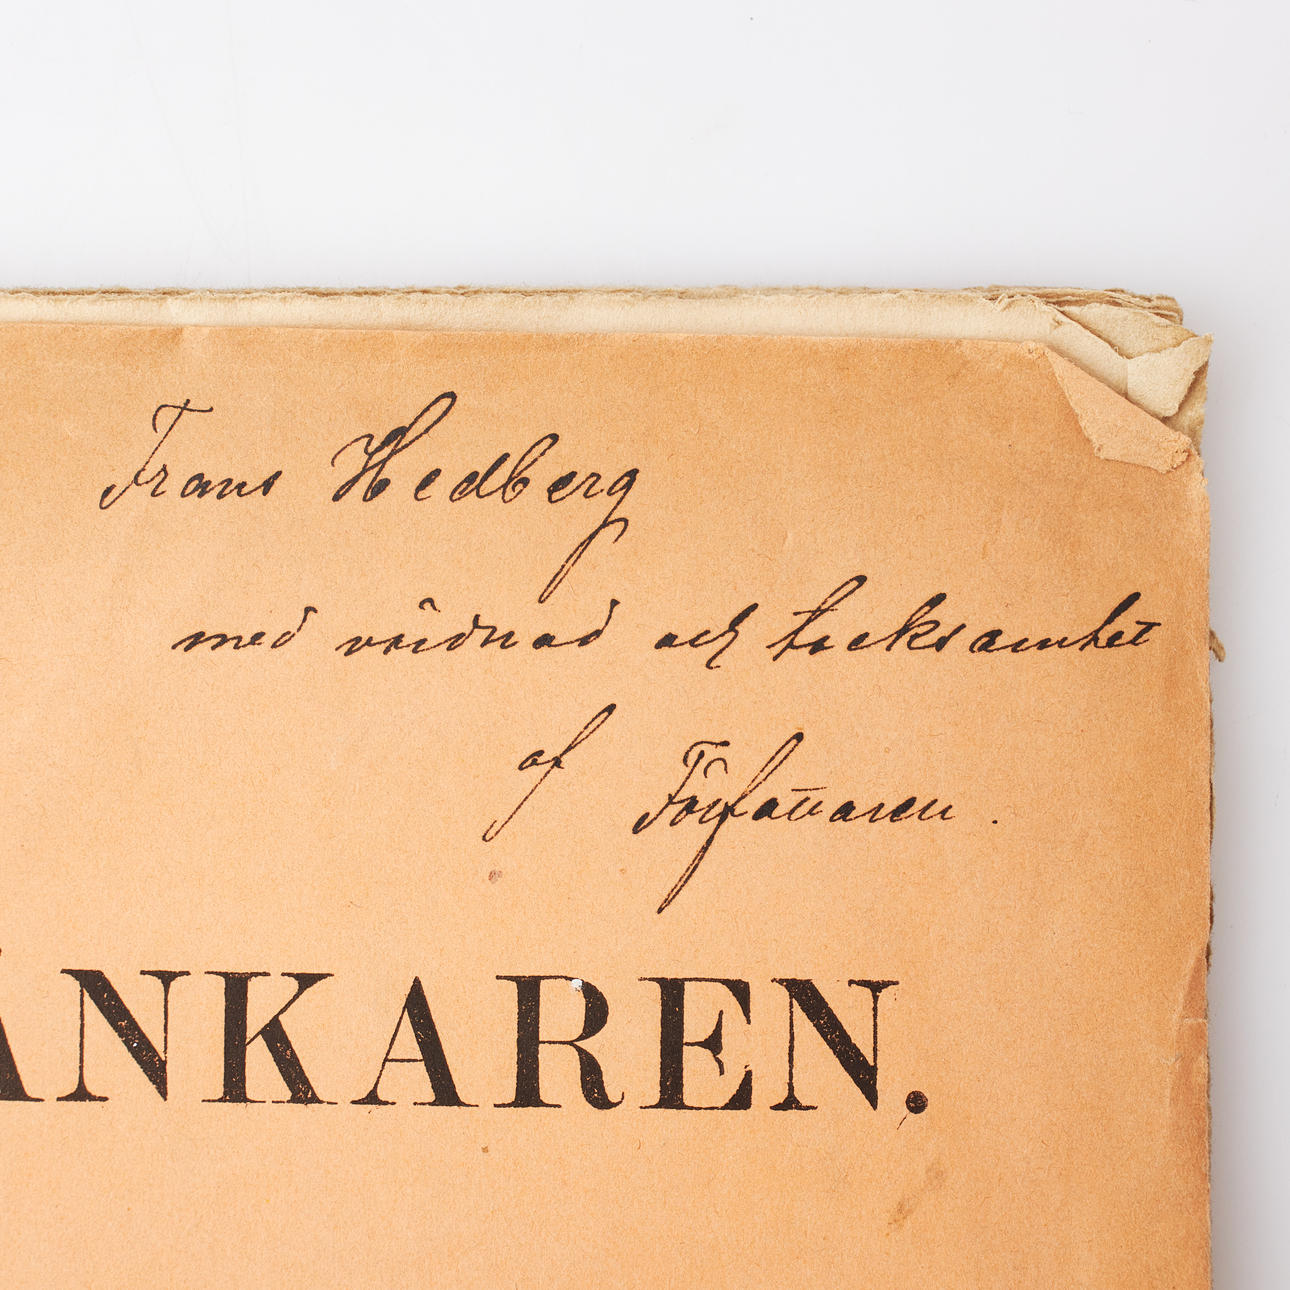 Frans Hedberg
med vördnad och tacksamhet
af Författaren.
ÄNKAREN.